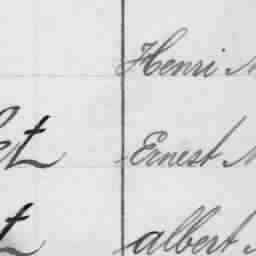 Henri
et Ernest
t albert